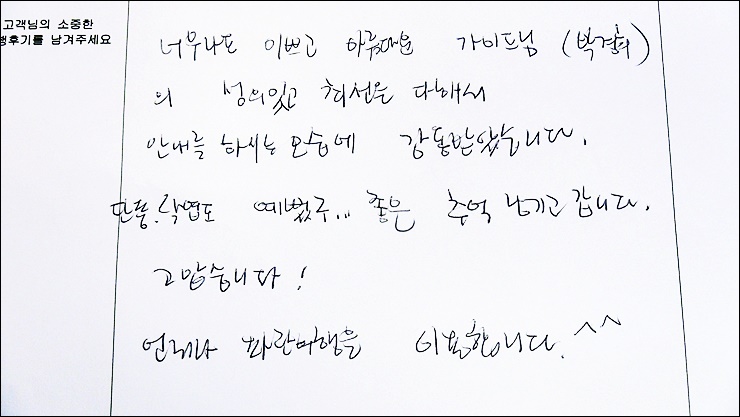 고객님의 소중한
행후기를 남겨주세요
너무나도 이쁘고 아름다운 가이드님 (박경희)
의 성의있고 최선을 다해서
안내를 하시는 모습에 감동받았습니다.
단풍.낙엽도 예뻤구... 좋은 추억 남기고 갑니다.
고맙습니다!
언제나 파란여행을 이용합니다. ^^